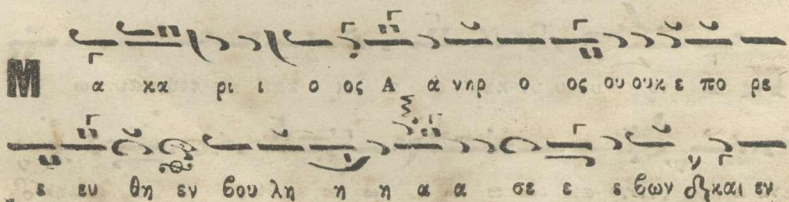 Μ α κα ρι ι ο ος Α ά νηρ ο ος ου ουκ ε πο ρε
ε ευ θη εν βου λη η η α α σε ε ε βων και εν